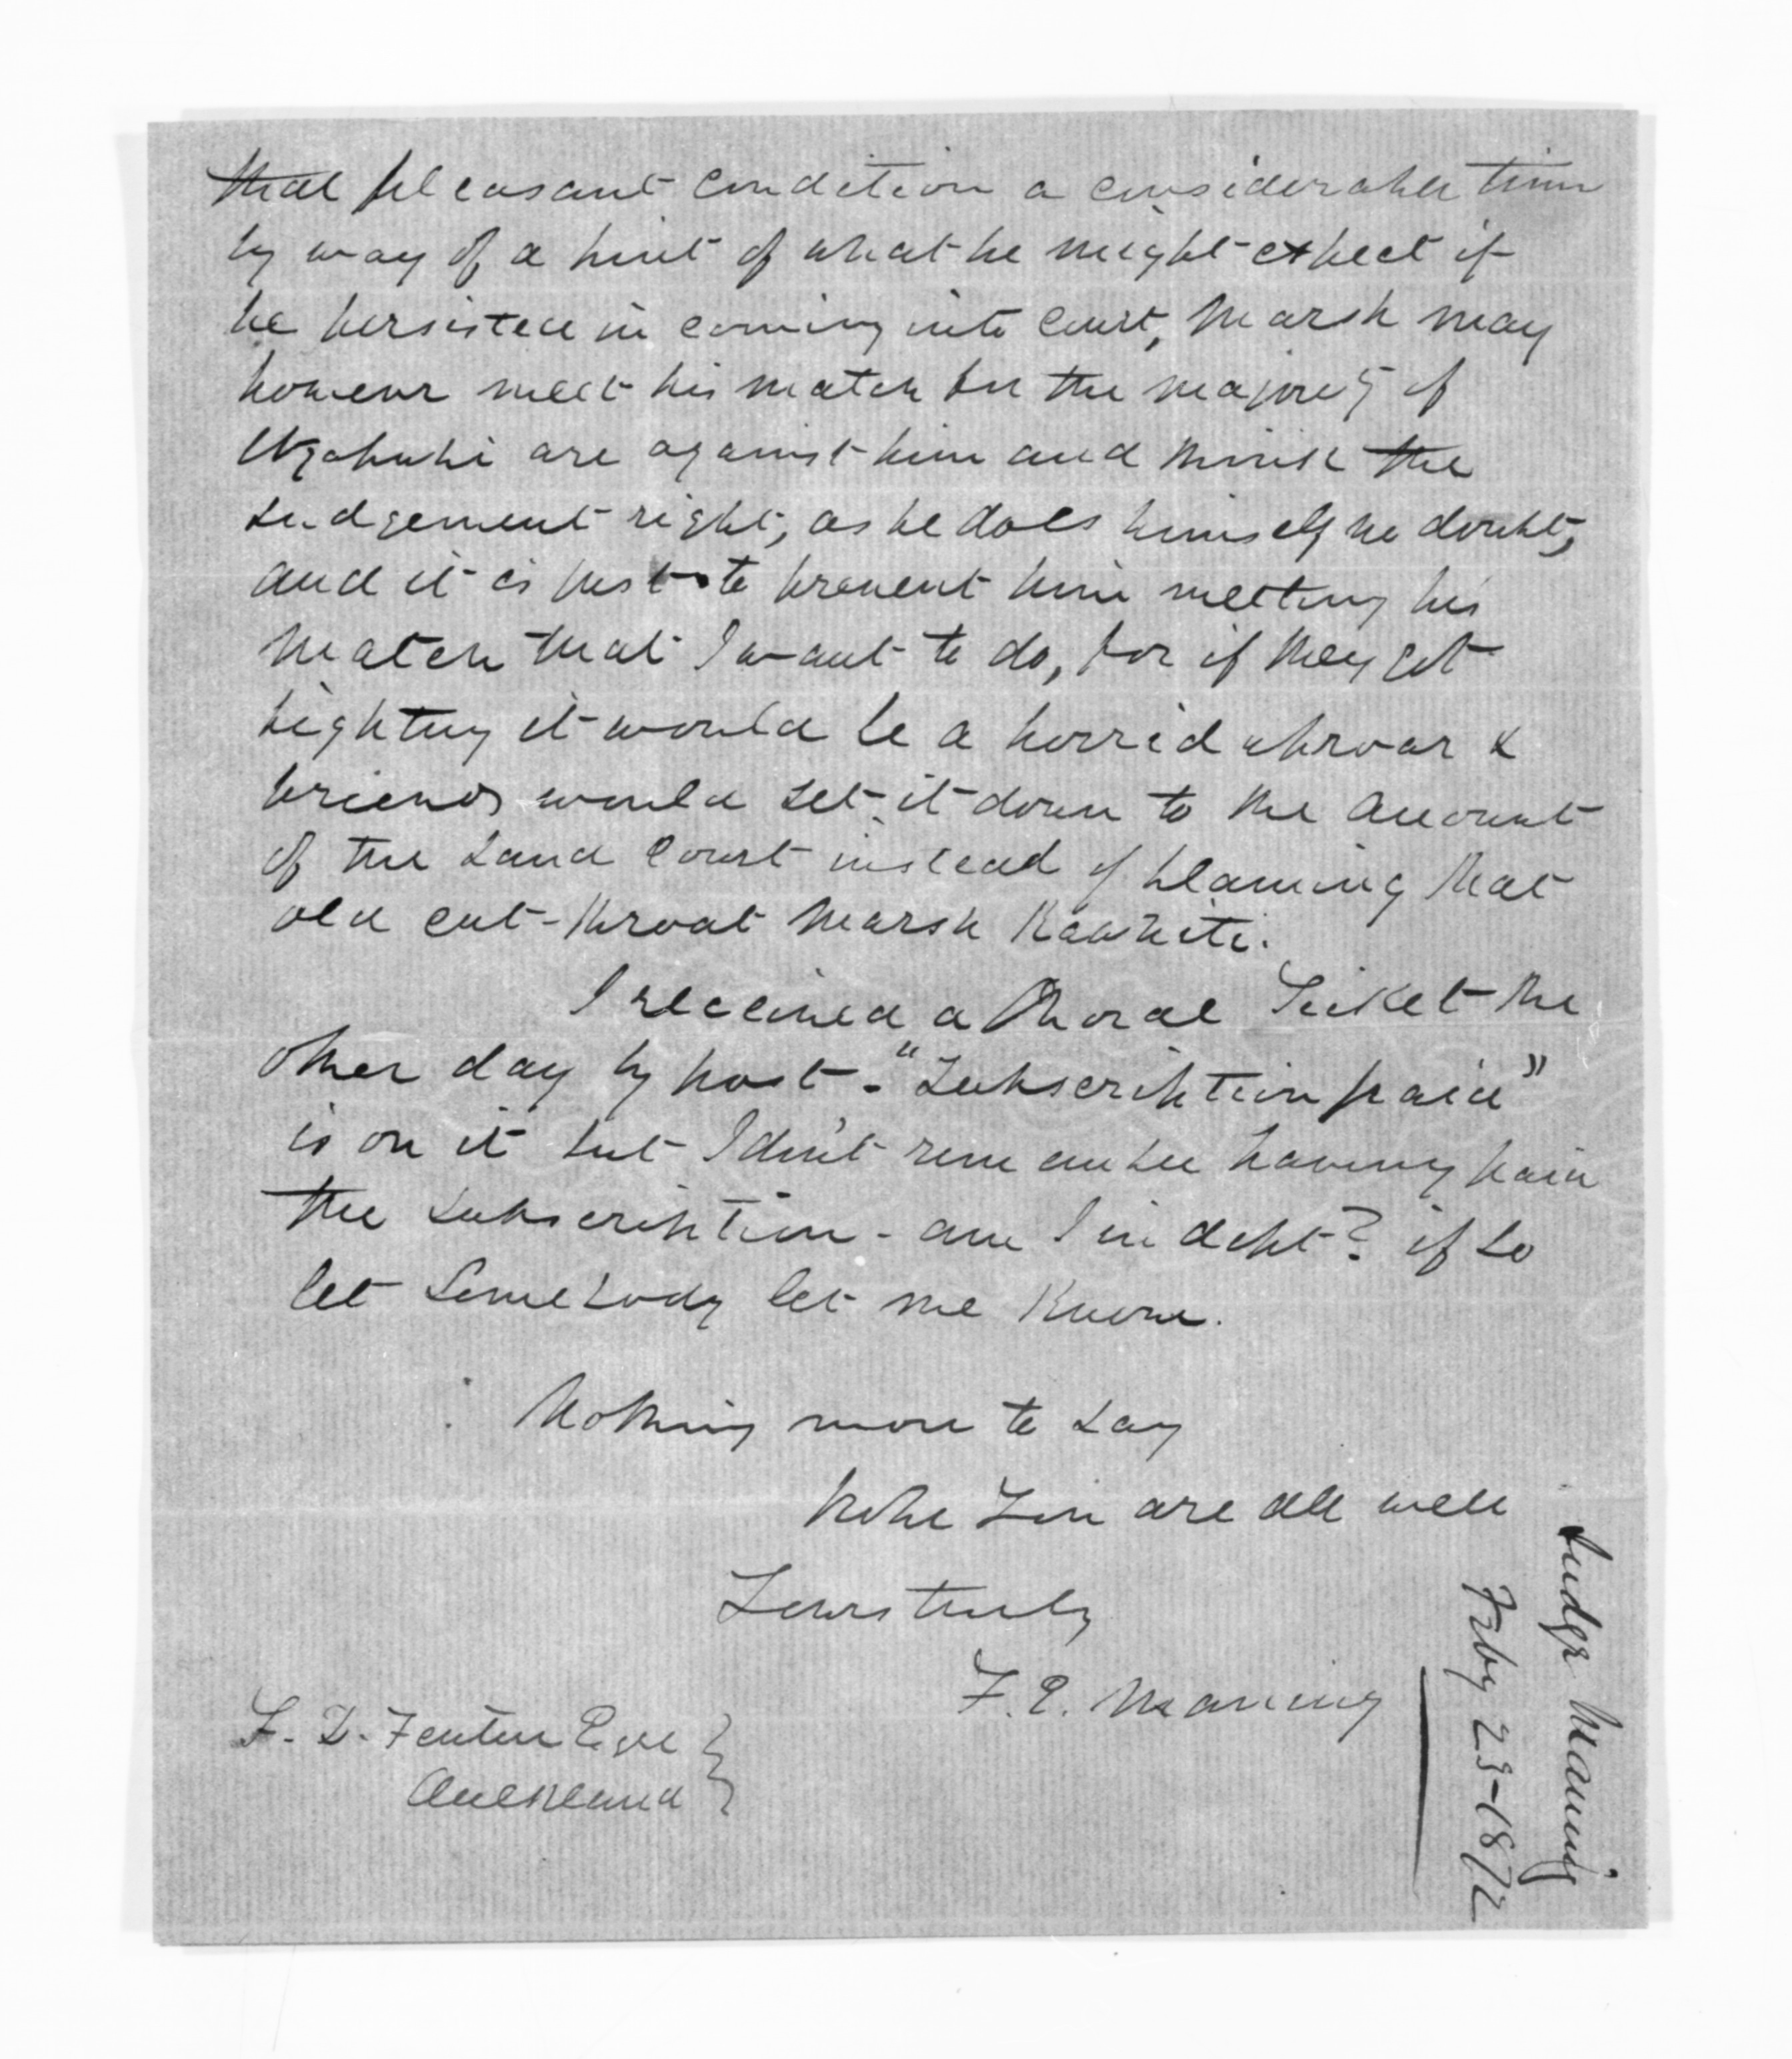 that pleasant condition a considerable time
by way of a hint of what he might expect if
he persisted in coming into Court, Marsh may
however meet his match for the majority of
Ngapuhi are against him and think the
Judgement right, as he does himself no doubt,
and it is just to prevent him meeting his
match that I want to do, for if they get
fighting it would be a horrid uproar &
friends would set it down to the account
of the Land Court instead of blaming that
old cut-throat Marsh Kawhiti.
I received a Choral Ticket the
other day by post - "Subscription paid"
is on it but I don't remember having paid
the subscription - am I in debt? if so
let somebody let me know.
Nothing more to say
hope you are all well
Yours truly
F. E. Maning
F. D. Fenton Esqre
Auckland
Judge Maning
Feby 23-1872